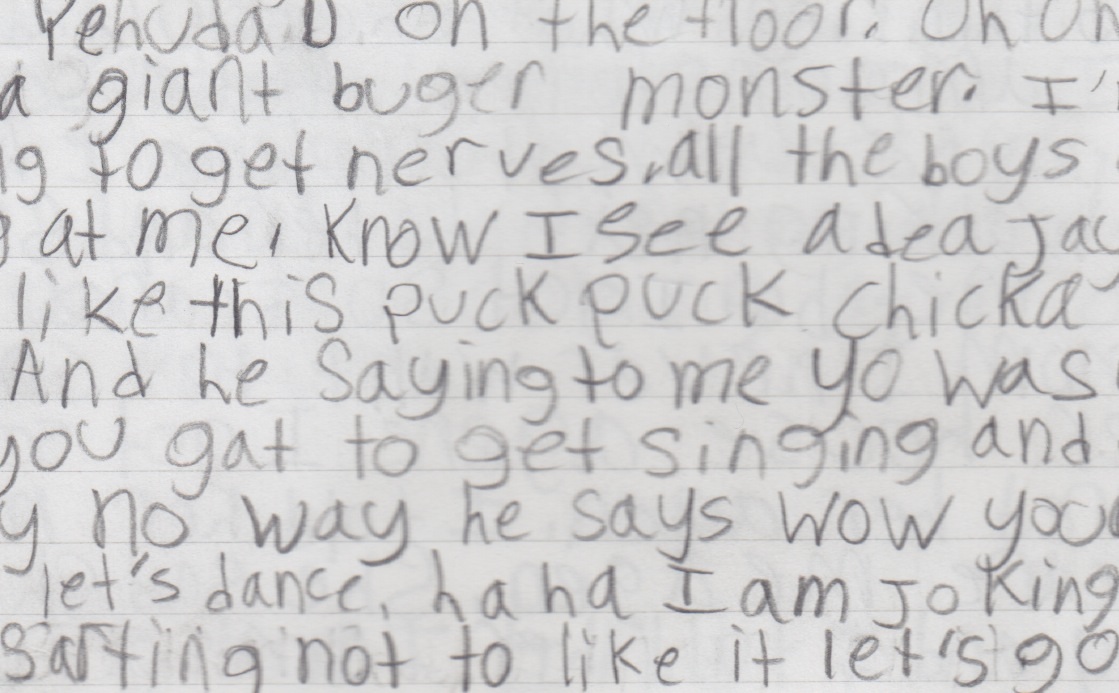 Yehuda D on the floor. Oh Oh
a giant buger monster. I'
ng to get nerves, all the boys
g at me, Know I see a dea jac
like this puck puck chicka
And he Saying to me yo was
you gat to get singing and
y no way he says wow you
let's dance, haha I am joking
Sarting not to like it let's go